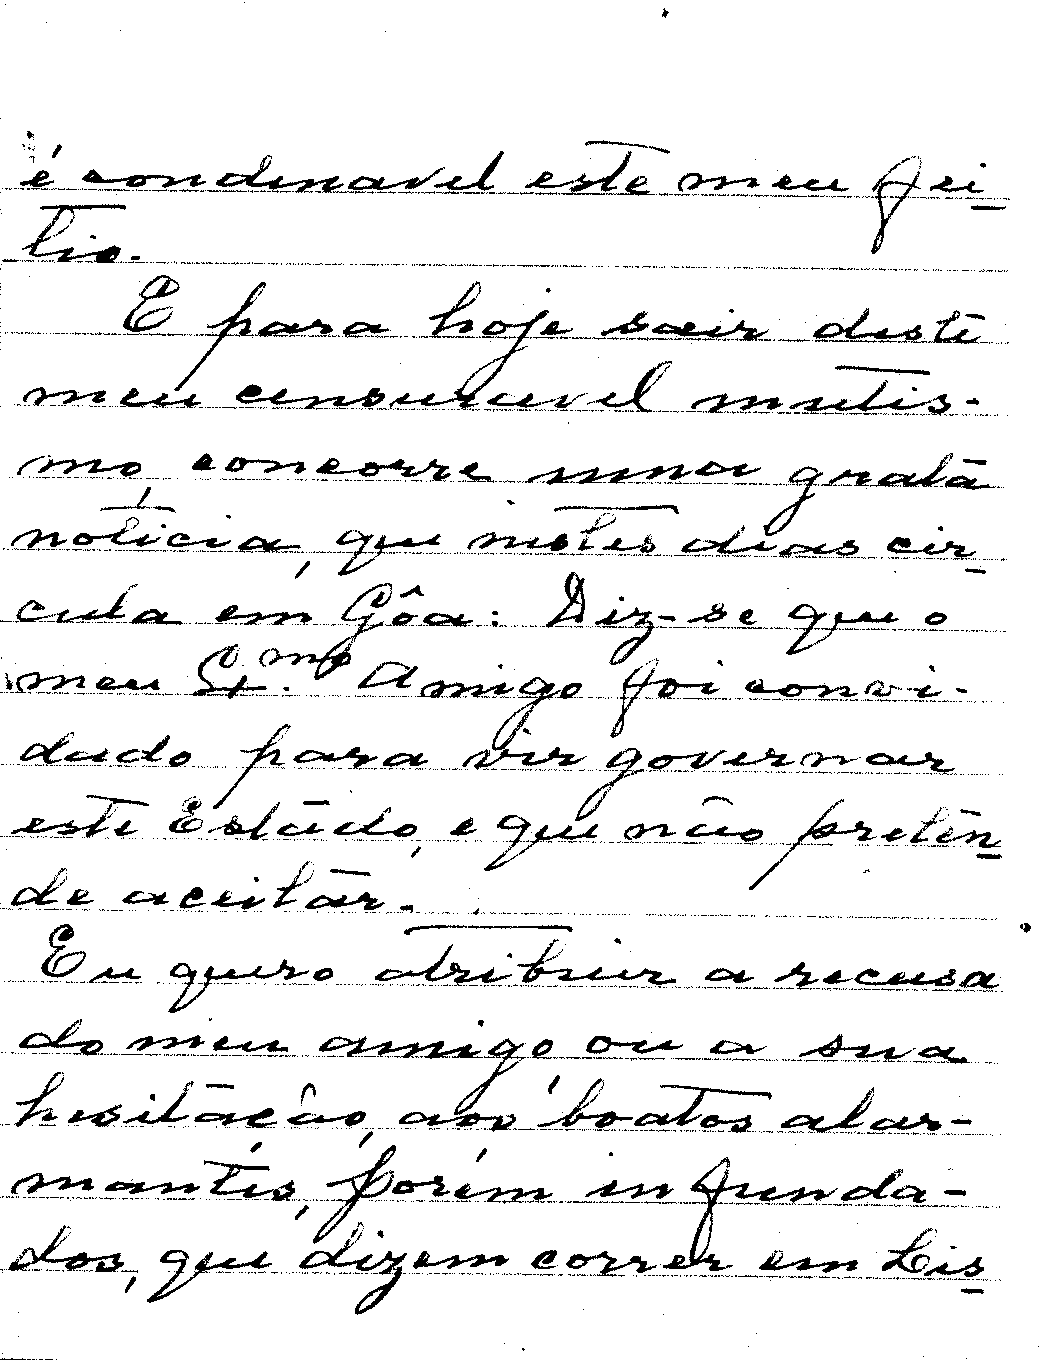 é condenavel este meu fei-
tio.
E para hoje sair deste
meu censuravel mutis-
mo, concorre uma grata
noticia, que nestes dias cir-
cula em Gôa: Diz-se que o
meu Ex.mo Amigo foi convi-
dado para vir governar
este Estado, e que não preten-
de aceitar.
Eu quero atribuir a recusa
do meu amigo, ou a sua
hesitação, aos boatos alar-
mantes, porém infunda-
dos, que dizem correr em Lis-